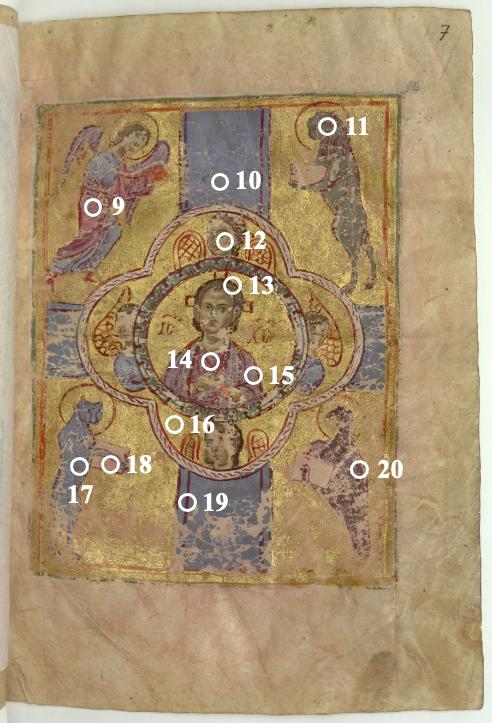 7
11
10
9
12
13
IC XC
14
15
16
18
17
20
19